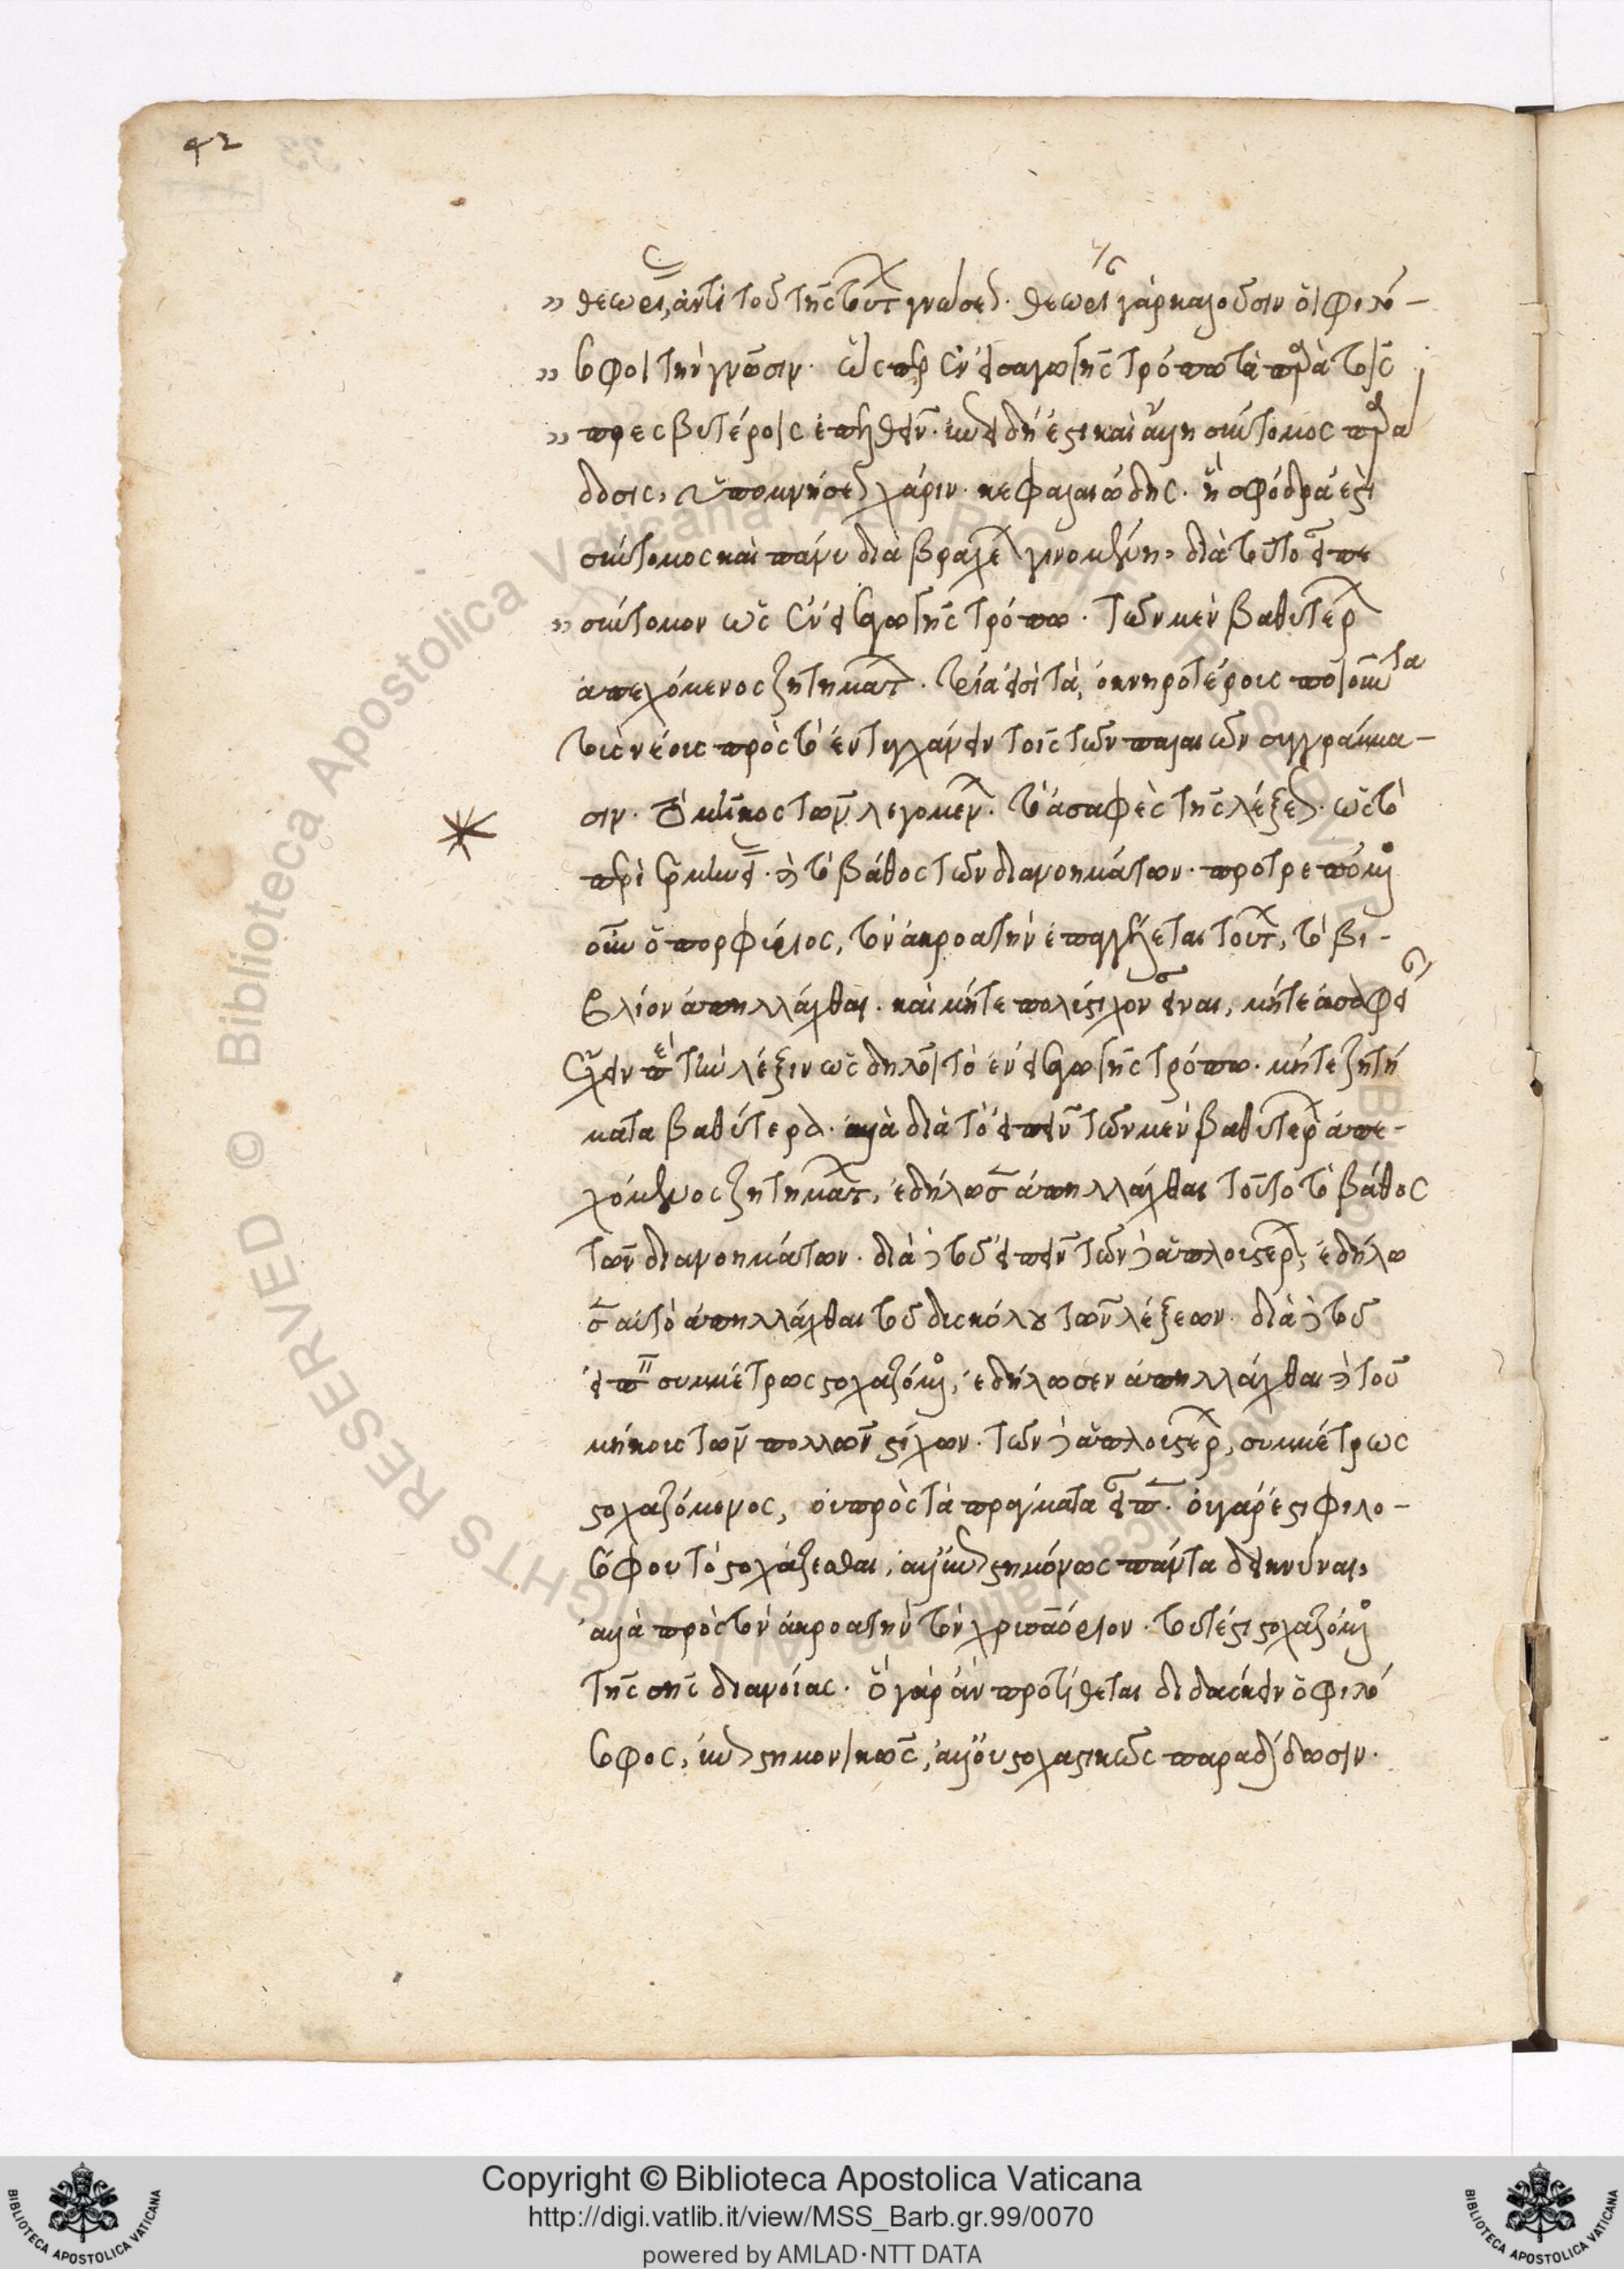 42
θεωρίας, ἀντὶ τοῦ τῆς τούτων γνώσεως. θεωρίαν γὰρ καλοῦσιν οἱ φιλό-
σοφοι τὴν γνῶσιν. ὥσπερ ἐν εἰσαγωγῆς τρόπῳ τὰ παρὰ τοῖς
πρεσβυτέροις ἐπελθεῖν. ἐπειδὴ ἔστι καὶ ἄλλη σύντομος παρά
δοσις, ὑπομνήσεως χάριν. κεφαλαιώδης. ἣ σφόδρά ἐστι
σύντομος καὶ πάνυ διὰ βραχέων γινομένη, διὰ τοῦτο εἶπε
σύντομον ὡς ἐν εἰσαγωγῆς τρόπῳ. τῶν μὲν βαθυτέρων
ἀπεχόμενος ζητημάτων. τρία εἰσὶ τὰ, ὀκνηροτέρους ποιοῦντα
τοὺς νέους πρὸς τὸ ἐντυγχάνειν τοῖς τῶν παλαιῶν συγγράμμα-
σιν. τὸ μῆκος τῶν λεγομένων. τὸ ἀσαφὲς τῆς λέξεως. ὡς τὸ
περὶ ἑρμηνείας. καὶ τὸ βάθος τῶν διανοημάτων. προτρεπόμενος
οὖν ὁ πορφύριος, τὸν ἀκροατὴν ἐπαγγέλλεται τοῦτο, τὸ βι-
βλίον ἀπηλλάχθαι. καὶ μήτε πολύστιχον εἶναι, μήτε ἀσάφειαν
ἔχειν περὶ τὴν λέξιν ὡς δηλοῖ τὸ ἐν εἰσαγωγῆς τρόπῳ. μήτε ζητή
ματα βαθύτερα. ἀλλὰ διὰ τὸ εἰπεῖν τῶν μὲν βαθυτέρων ἀπε-
χόμενος ζητημάτων, ἐδήλωσεν ἀπηλλάχθαι τοῦτο τὸ βάθος
τῶν διανοημάτων. διὰ δὲ τοῦ εἰπεῖν τῶν δὲ ἁπλουστέρων, ἐδήλω
σεν αὐτὸ ἀπηλλάχθαι τοῦ δυσκόλου τῶν λέξεων. διὰ δὲ τοῦ
εἰπεῖν συμμέτρως στοχαζόμενος, ἐδήλωσεν ἀπηλλάχθαι καὶ τοῦ
μήκους τῶν πολλῶν στίχων. τῶν δὲ ἁπλουστέρων, συμμέτρως
στοχαζόμενος, οὐ πρὸς τὰ πράγματα εἶπεν. οὐ γάρ ἐστι φιλο-
σόφου τὸ στοχάζεσθαι, ἀλλ' ἐπιστημόνως πάντα δεικνύναι,
ἀλλὰ πρὸς τὸν ἀκροατὴν τὸν χρυσαόριον. τουτέστι στοχαζόμενος
τῆς σῆς διανοίας. ὃ γὰρ ἂν προτίθεται διδάσκειν ὁ φιλό
σοφος, ἐπιστημονικῶς, ἀλλ' οὐ στοχαστικῶς παραδίδωσιν.
© Biblioteca Apostolica Vaticana ALL RIGHTS RESERVED
Copyright © Biblioteca Apostolica Vaticana
http://digi.vatlib.it/view/MSS_Barb.gr.99/0070
powered by AMLAD·NTT DATA
BIBLIOTECA APOSTOLICA VATICANA
BIBLIOTECA APOSTOLICA VATICANA